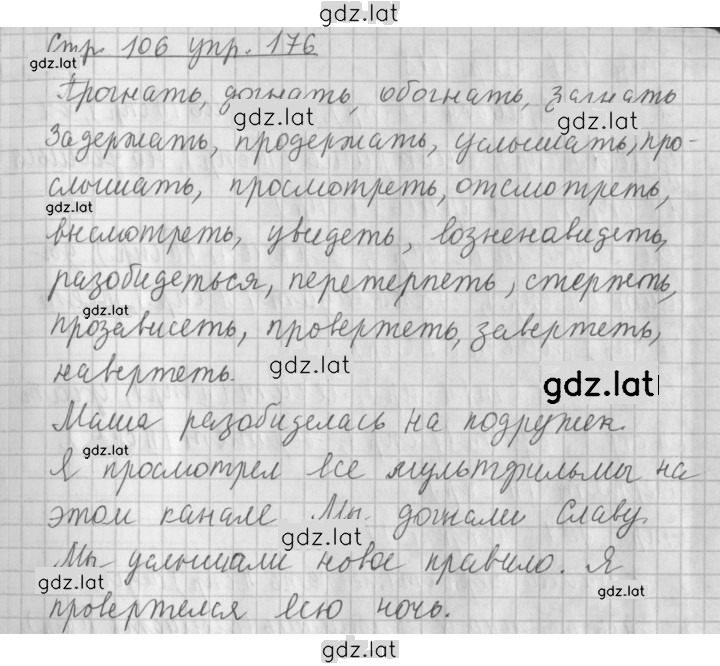 gdz.lat
Стр. 106 упр. 176
gdz.lat
Прогнать, догнать, обогнать, загнать
gdz.lat gdz.lat
Задержать, продержать, услышать, про-
слышать, просмотреть, отсмотреть,
gdz.lat
высмотреть, увидеть, возненавидеть,
разобидеться, перетерпеть, стерпеть,
gdz.lat
прозависеть, провертеть, завертеть,
навертеть.
gdz.lat gdz.lat
Маша разобиделась на подружек.
gdz.lat
Я просмотрел все мультфильмы на
этом канале Мы догнали Славу
gdz.lat
Мы услышали новое правило. Я
gdz.lat gdz.lat
провертелся всю ночь.
gdz.lat